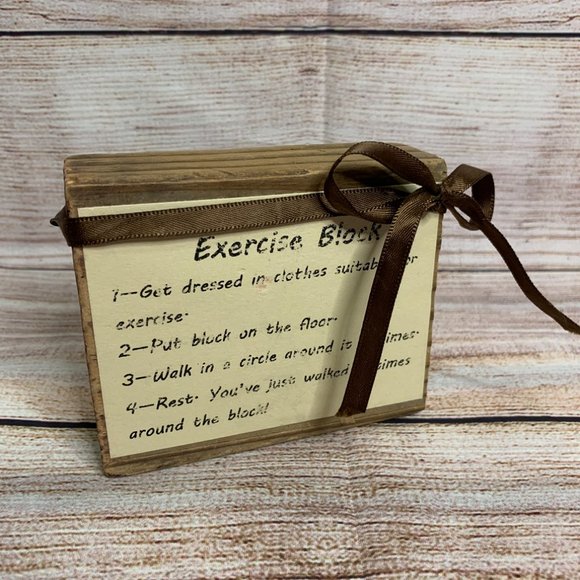 Exercise Block
1—Get dressed in clothes suitable for
exercise.
2—Put block on the floor.
3—Walk in a circle around it times.
4—Rest. You've just walked times
around the block!